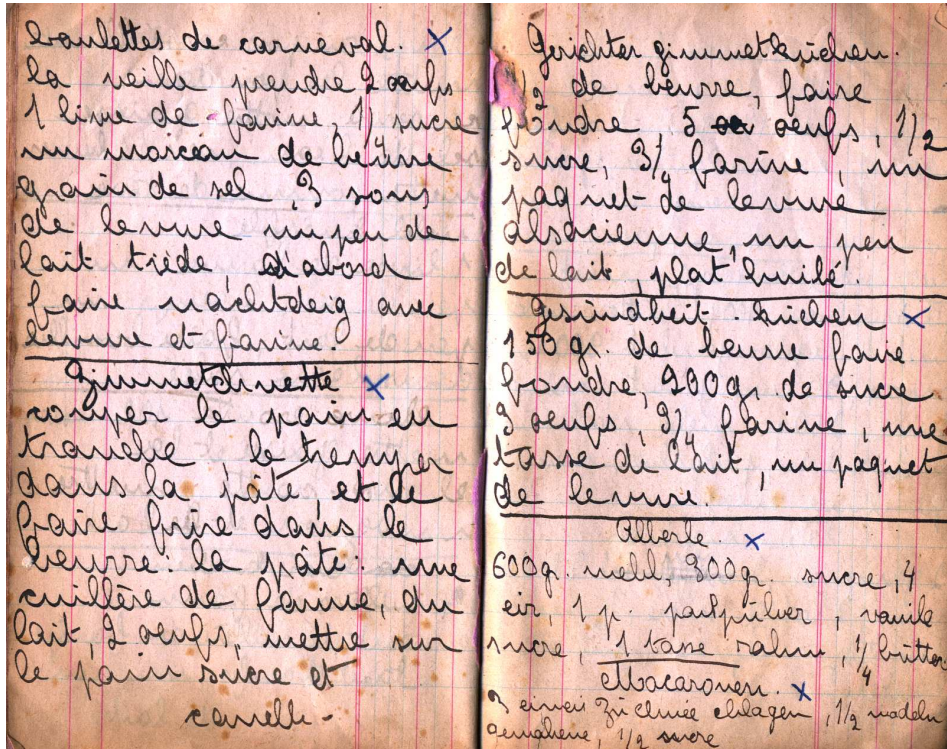 boulettes de carnaval. X
la veille prendre 2 oeufs
1 livre de farine, 1/2 sucre
un morceau de beurre
grain de sel, 3 sous
de levure un peu de
lait tiède d'abord
faire nachtdeig avec
levure et farine.
Zimmetchnette X
couper le pain en
tranche, le tremper
dans la pâte, et le
faire frire dans le
beurre. la pâte: une
cuillère de farine, du
lait, 2 oeufs, mettre sur
le pain sucre et
cannelle -
Gerichter zimmetkuchen.
de beurre, faire
fondre, 5 oeufs, 1/2
sucre, 3/4 farine, un
paquet de levure
alsacienne, un peu
de lait, plat huilé.
Gesundheit - kuchen X
150 gr. de beurre faire
fondre, 200 gr. de sucre
3 oeufs, 3/4 farine, une
tasse de lait, un paquet
de levure.
Alberle. X
600 g. mehl, 300 gr. sucre, 4
eir, 1 p. pulver, vanile
sucre, 1 tasse rahm, 1/4 butter
Macaronen. X
3 eiweis zu chnée chlagen, 1/2 nodeln
gemahlene, 1/2 sucre